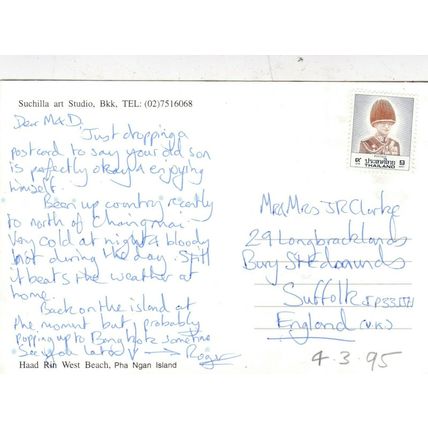 Suchilla art Studio, Bkk, TEL: (02)7516068
Dear M & D.
Just dropping a
postcard to say your old son
is perfectly okay & enjoying
himself.
Been up country recently
to north of Chaingmai
Very cold at night & bloody
hot during the day. Still
it beats the weather at
home.
Back on the island at
the moment but probably
popping up to Bangkok sometime
See you later
Roger
Haad Rin West Beach, Pha Ngan Island
ประเทศไทย
THAILAND
Mr & Mrs J R Clarke
29
Bury St Edmunds
Suffolk
England (U.K.)
4.3.95